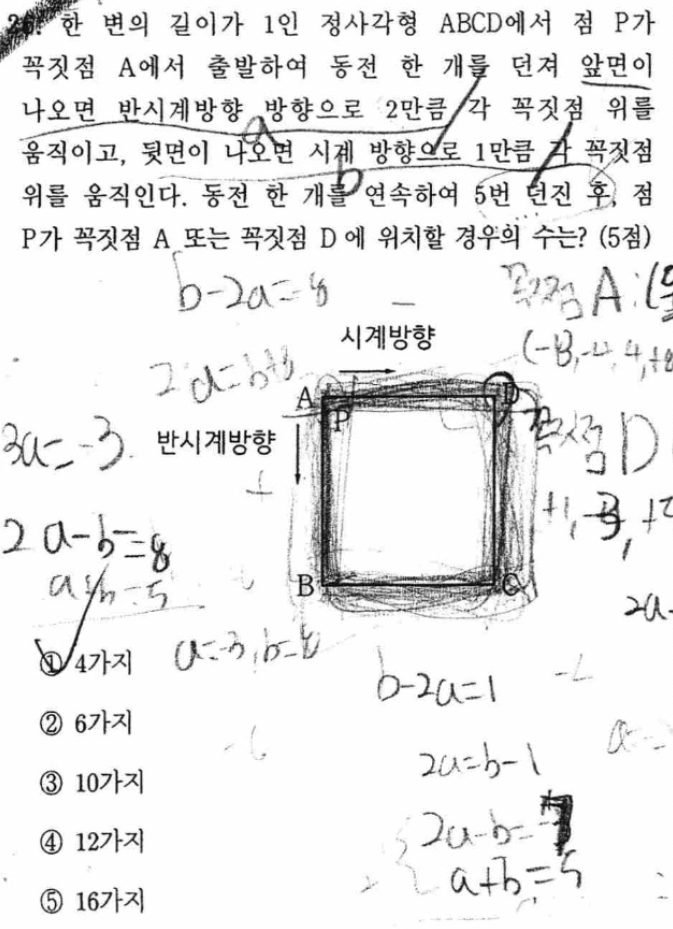 26. 한 변의 길이가 1인 정사각형 ABCD에서 점 P가
꼭짓점 A에서 출발하여 동전 한 개를 던져 앞면이
나오면 반시계방향 방향으로 2만큼 각 꼭짓점 위를
a
움직이고, 뒷면이 나오면 시계 방향으로 1만큼 각 꼭짓점
b
위를 움직인다. 동전 한 개를 연속하여 5번 던진 후, 점
P가 꼭짓점 A 또는 꼭짓점 D에 위치할 경우의 수는? (5점)
b-2a=-8
꼭짓점 A:
2a=b+8
시계방향
A D
P
3a=-3
반시계방향
꼭짓점 D
2a-b=8
a+b=5
B C
① 4가지
a=-3, b=8
b-2a=1
② 6가지
2a=b-1
③ 10가지
2a-b=
④ 12가지
a+b=5
⑤ 16가지